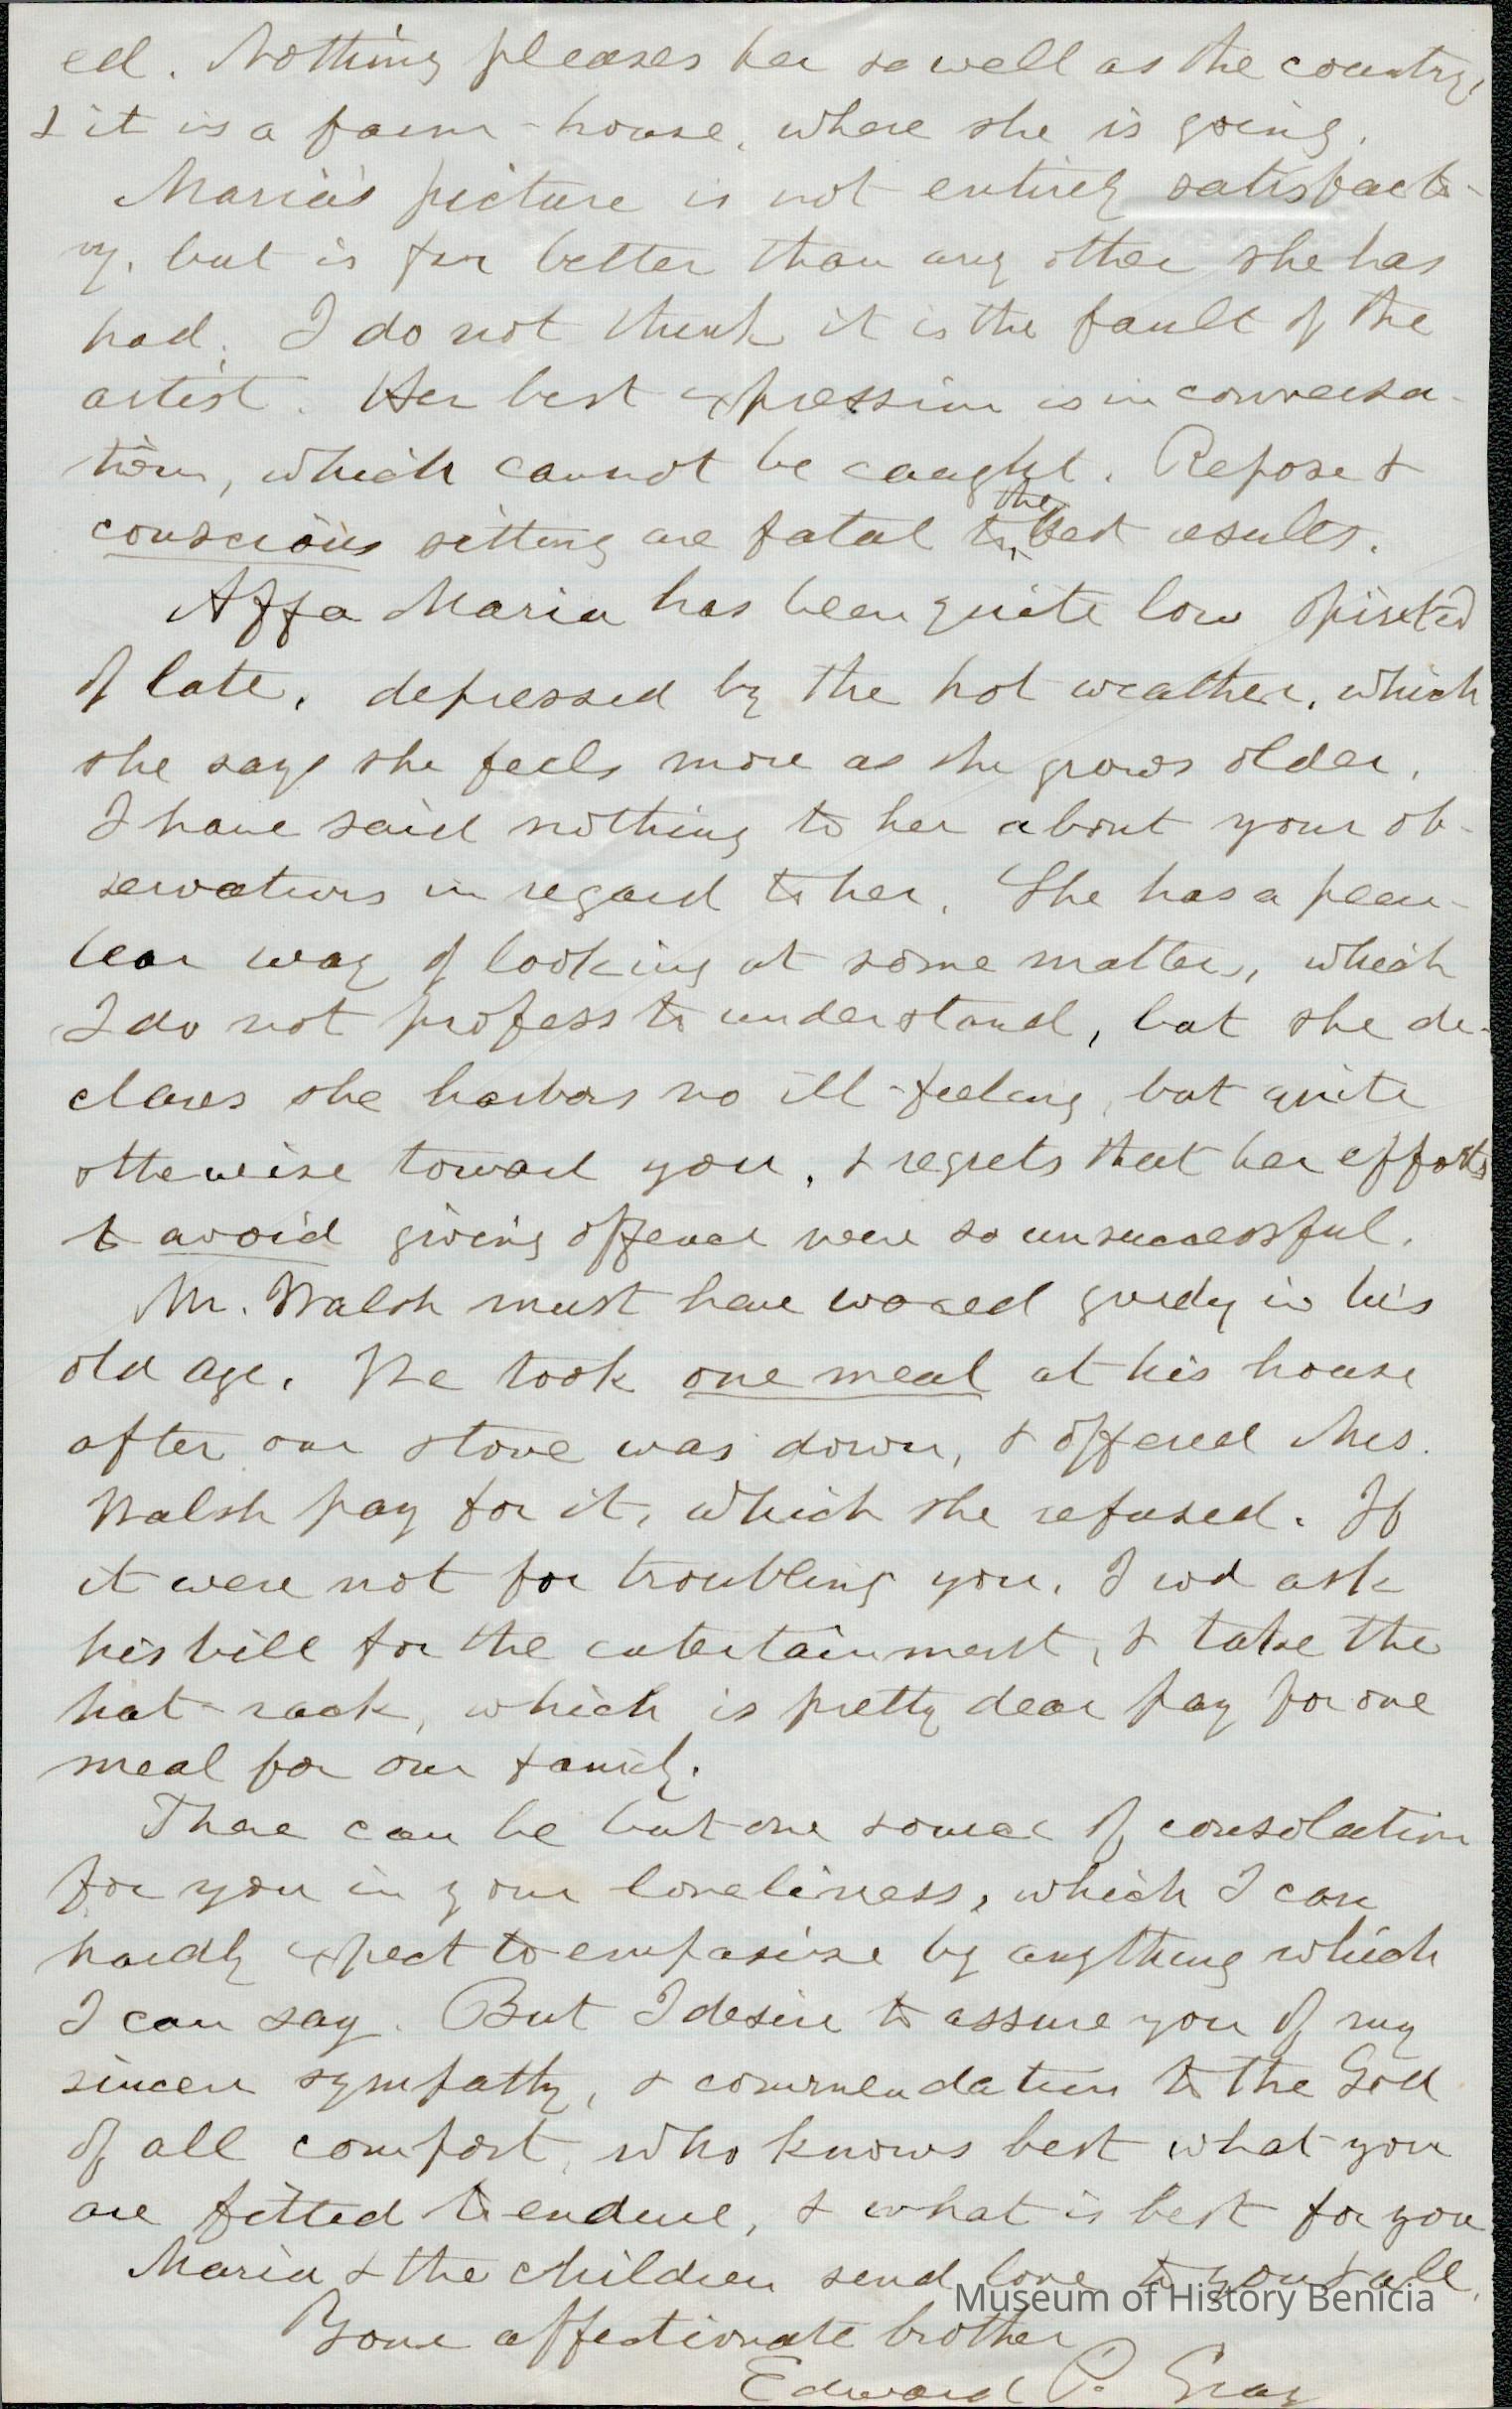 ed. Nothing pleases her so well as the country,
& it is a farm-house, where she is going.
Maria's picture is not entirely satisfacto-
ry, but is far better than any other she has
had. I do not think it is the fault of the
artist. Her best expression is in conversa-
tion, which cannot be caught. Repose &
conscious sitting are fatal to the best results.
Affa Maria has been quite low spirited
of late, depressed by the hot weather, which
she says she feels more as she grows older.
I have said nothing to her about your ob-
servations in regard to her. She has a pecu-
liar way of looking at some matters, which
I do not profess to understand, but she de-
clares she harbors no ill-feeling, but quite
otherwise toward you, & regrets that her efforts
to avoid giving offence were so unsuccessful.
Mr. Walsh must have waxed greedy in his
old age. We took one meal at his house
after our stove was down, & offered Mrs.
Walsh pay for it, which she refused. If
it were not for troubling you, I wd ask
his bill for the entertainment, & take the
hat-rack, which is pretty dear pay for one
meal for our family.
There can be but one source of consolation
for you in your loneliness, which I can
hardly expect to empasise by anything which
I can say. But I desire to assure you of my
sincere sympathy, & commendation to the God
of all comfort, who knows best what you
are fitted to endure, & what is best for you.
Maria & the children send love to you & all.
Your affectionate brother
Edward P. Gray
Museum of History Benicia